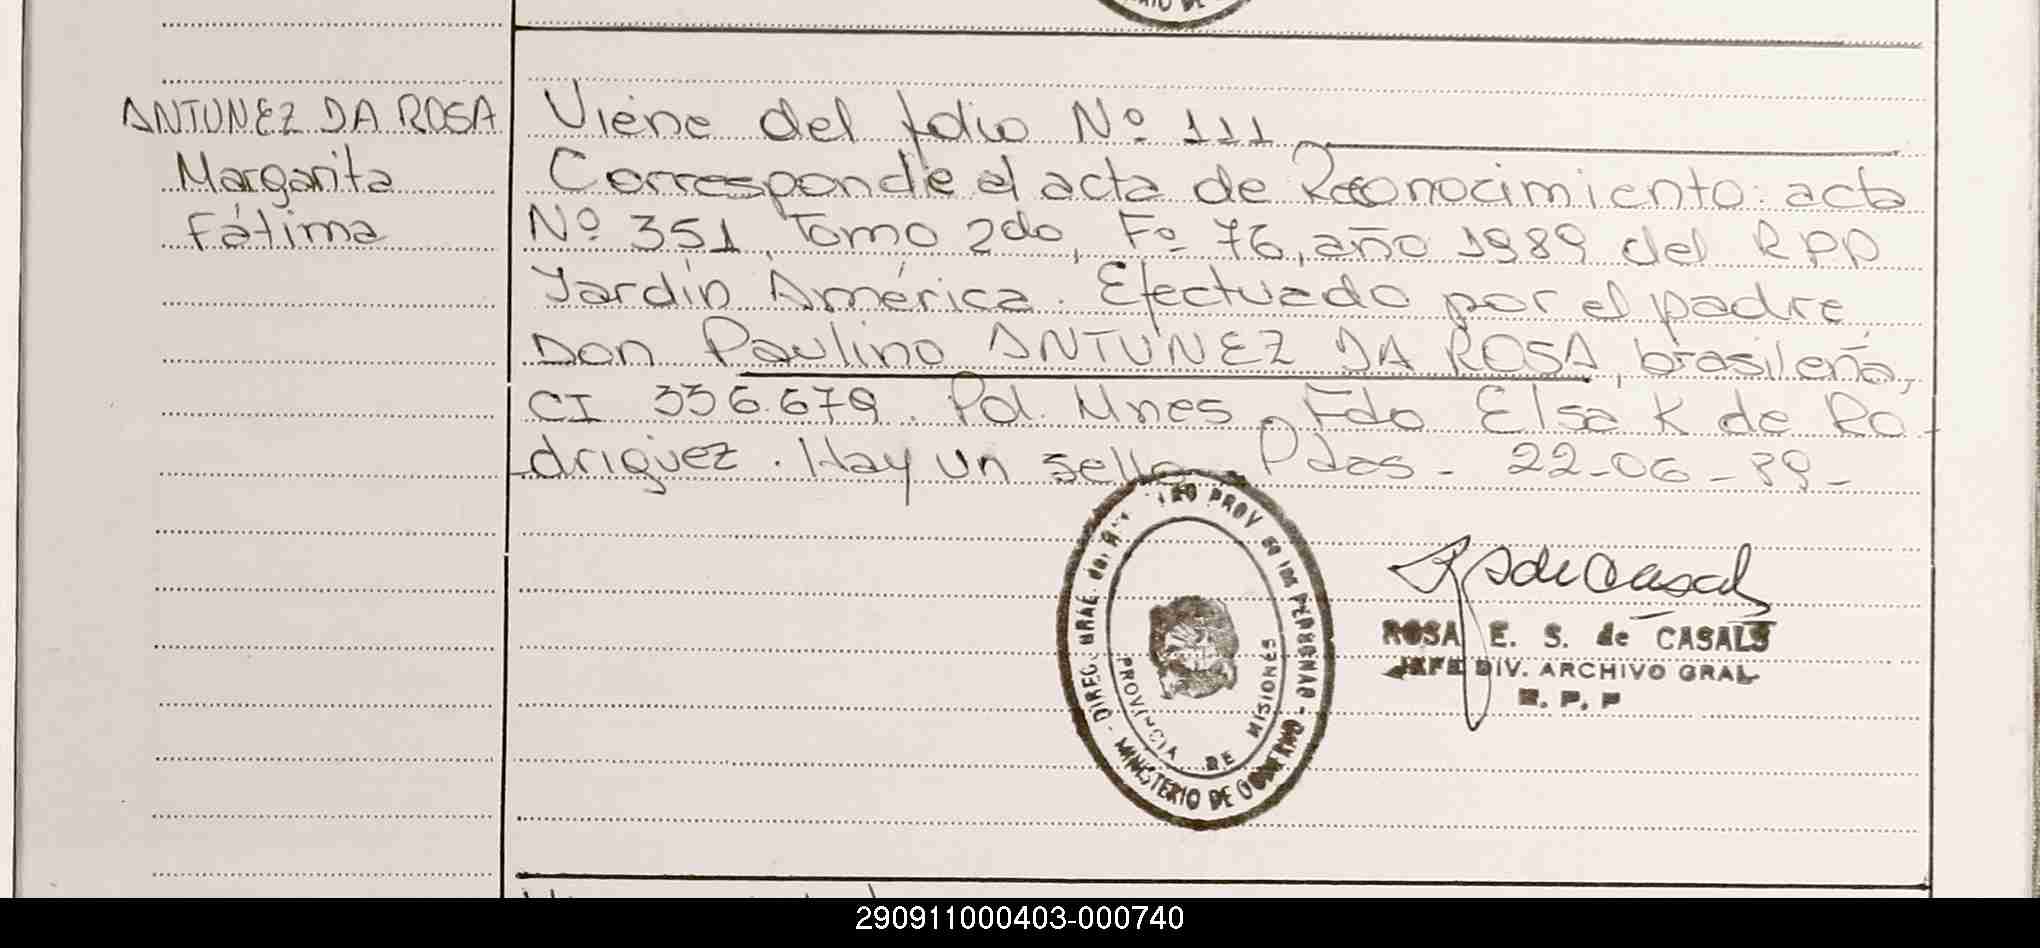 ANTUNEZ DA ROSA
Margarita
Fátima
Viene del folio Nº 111
Corresponde al acta de Reconocimiento: acta
Nº 351, Tomo 2do, Fº 76, año 1989 del RPP
Jardín América. Efectuado por el padre
Don Paulino ANTUNEZ DA ROSA, brasileño,
CI 336.679. Pol. Mnes. Fdo Elsa K de Ro-
driguez. Hay un sello - Pdas - 22-06-89-
PROV de las PERSONAS - MINISTERIO DE GOBIERNO - DIREC. GRAL. del
PROVINCIA DE MISIONES
R S de Casals
ROSA E. S. de CASALS
JEFE DIV. ARCHIVO GRAL
R. P. P
290911000403-000740